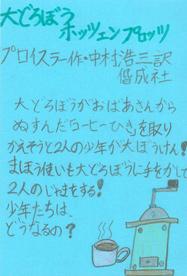 大どろぼう
ホッツェンプロッツ
プロイスラー作・中村浩三訳
偕成社
大どろぼうがおばあさんから
ぬすんだコーヒーひきを取り
かえそうと2人の少年が大ぼうけん！
まほう使いも大どろぼうに手をかして
2人のじゃまをする！
少年たちは、
どうなるの？